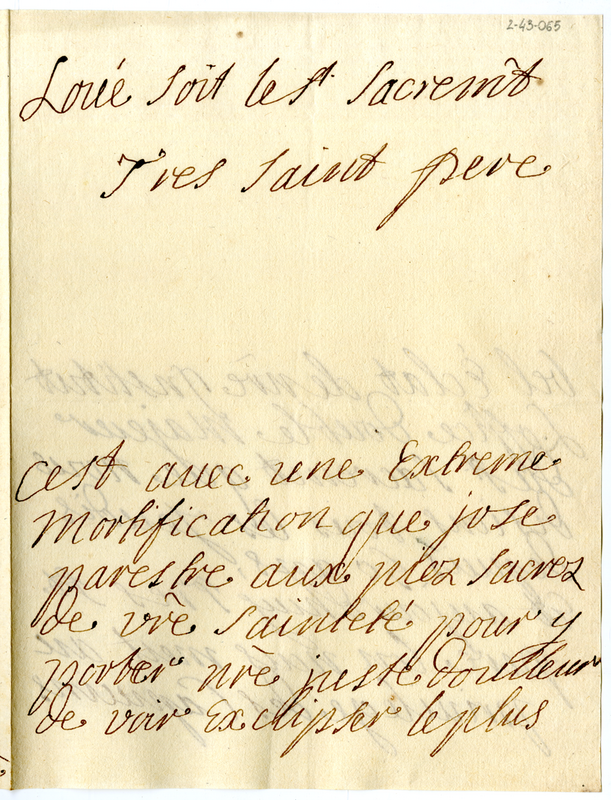 2-43-065
Loüé soit le st. sacremt̃
Tres saint pere
cest avec une Extreme
mortification que jose
parestre aux piez sacrez
de vr̃e sainteté pour y
porter nr̃e juste doulleur
de voir Exclipser le plus